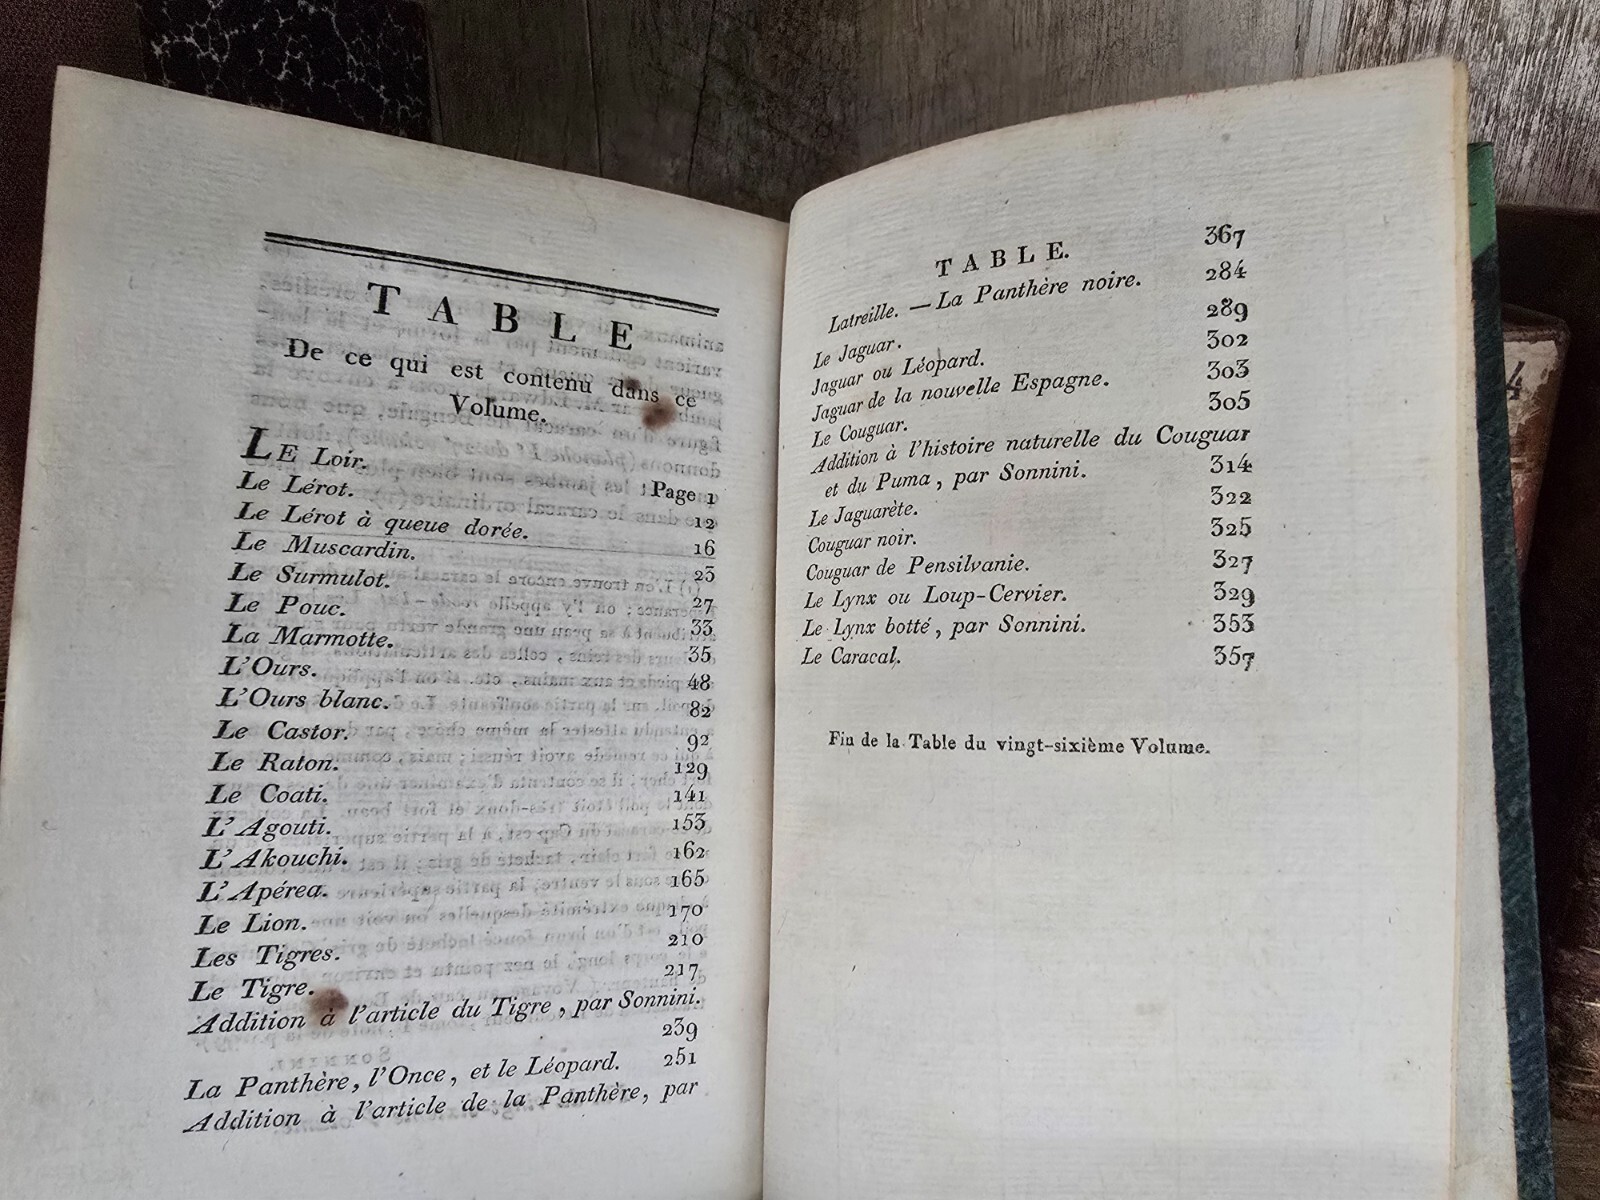 TABLE
De ce qui est contenu dans ce
Volume.
LE Loir. Page 1
Le Lérot. 12
Le Lérot à queue dorée. 16
Le Muscardin. 23
Le Surmulot. 27
Le Pouc. 33
La Marmotte. 35
L'Ours. 48
L'Ours blanc. 82
Le Castor. 92
Le Raton. 129
Le Coati. 141
L'Agouti. 153
L'Akouchi. 162
L'Apérea. 165
Le Lion. 170
Les Tigres. 210
Le Tigre. 217
Addition à l'article du Tigre, par Sonnini.
239
La Panthère, l'Once, et le Léopard. 251
Addition à l'article de la Panthère, par
TABLE. 367
Latreille. — La Panthère noire. 284
Le Jaguar. 289
Jaguar ou Léopard. 302
Jaguar de la nouvelle Espagne. 303
Le Couguar. 305
Addition à l'histoire naturelle du Couguar
et du Puma, par Sonnini. 314
Le Jaguarète. 322
Couguar noir. 325
Couguar de Pensilvanie. 327
Le Lynx ou Loup-Cervier. 329
Le Lynx botté, par Sonnini. 353
Le Caracal. 357
Fin de la Table du vingt-sixième Volume.
4